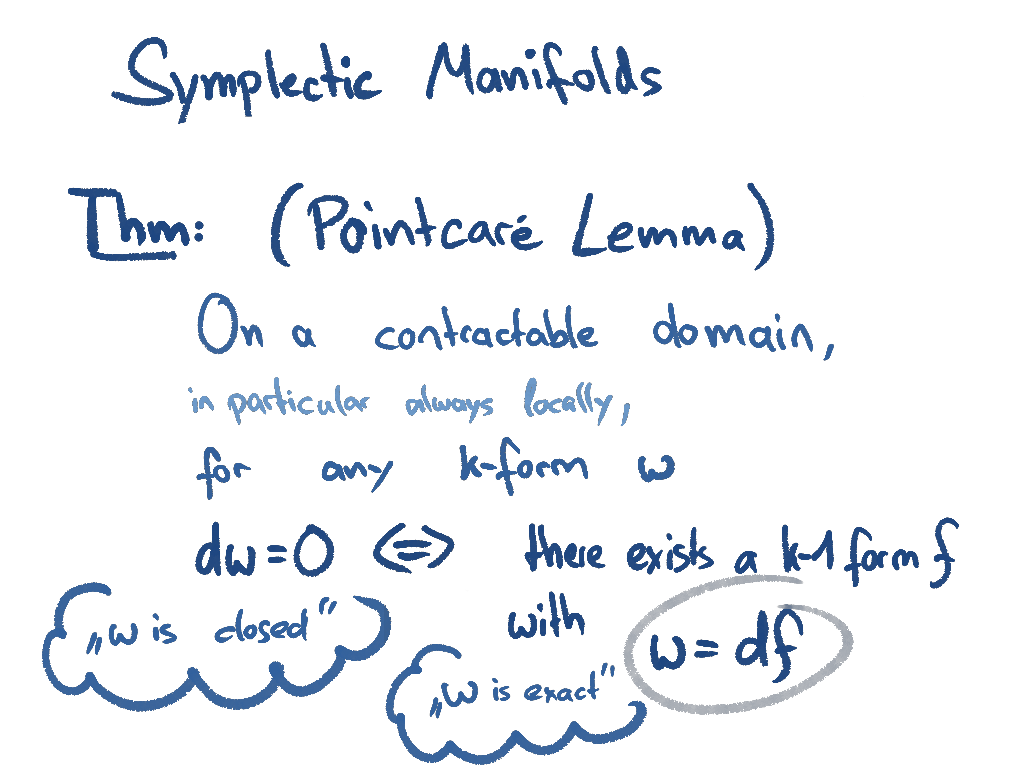 Symplectic Manifolds
Thm: (Pointcaré Lemma)
On a contractable domain,
in particular always locally,
for any k-form ω
dω=0 <=> there exists a k-1 form f
with ω = df
„ω is closed"
„ω is exact"